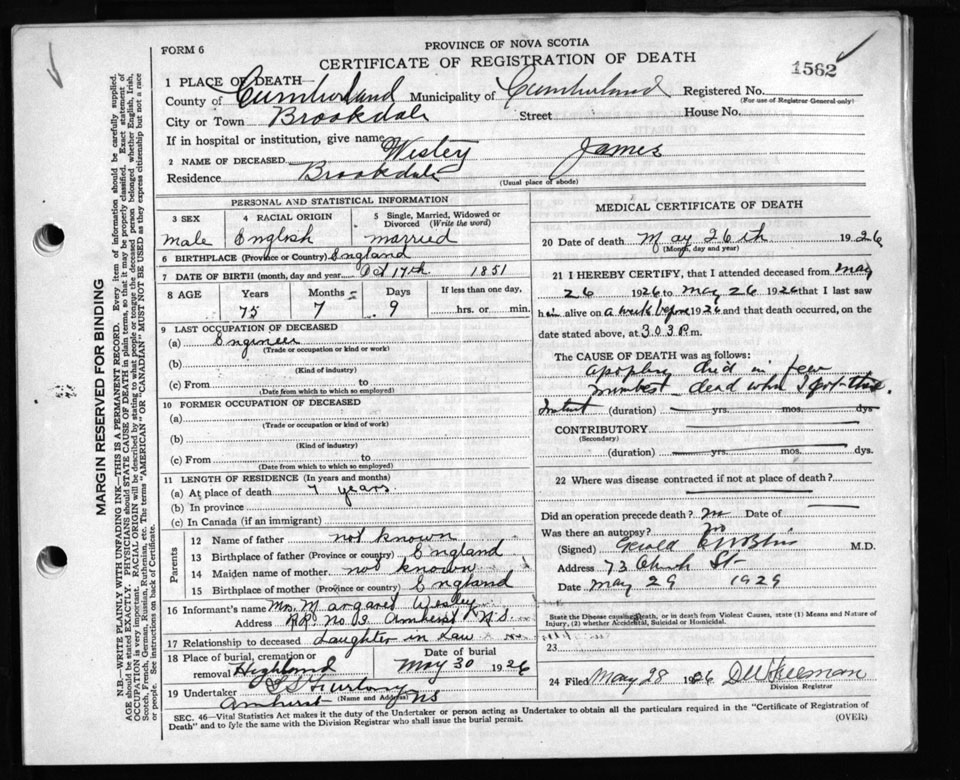 FORM 6
PROVINCE OF NOVA SCOTIA
CERTIFICATE OF REGISTRATION OF DEATH
1562
1 PLACE OF DEATH—
County of Cumberland Municipality of Cumberland Registered No.
(For use of Registrar General only)
City or Town Brookdale Street House No.
If in hospital or institution, give name
2 NAME OF DECEASED Wesley James
Residence Brookdale
(Usual place of abode)
PERSONAL AND STATISTICAL INFORMATION
3 SEX 4 RACIAL ORIGIN 5 Single, Married, Widowed or Divorced (Write the word)
male English married
6 BIRTHPLACE (Province or Country) England
7 DATE OF BIRTH (month, day and year) Oct 17th 1851
8 AGE Years Months Days If less than one day,
75 7 9 hrs. or min.
9 LAST OCCUPATION OF DECEASED
(a) Engineer
(Trade or occupation or kind or work)
(b)
(Kind of industry)
(c) From to
(Date from which to which so employed)
10 FORMER OCCUPATION OF DECEASED
(a)
(Trade or occupation or kind of work)
(b)
(Kind of industry)
(c) From to
(Date from which to which so employed)
11 LENGTH OF RESIDENCE (In years and months)
(a) At place of death 7 years
(b) In province
(c) In Canada (if an immigrant)
Parents
12 Name of father not known
13 Birthplace of father (Province or country) England
14 Maiden name of mother not known
15 Birthplace of mother (Province or country) England
16 Informant's name Mrs. Margaret Wesley
Address RR No 3 Amherst N.S.
17 Relationship to deceased daughter in law
18 Place of burial, cremation or removal Highland
Date of burial May 30 1926
19 Undertaker Furlong
(Name and Address)
Amherst NS
MEDICAL CERTIFICATE OF DEATH
20 Date of death May 26th 1926
(Month, day and year)
21 I HEREBY CERTIFY, that I attended deceased from May
26 1926 to May 26 1926 that I last saw
him alive on a week before 1926 and that death occurred, on the
date stated above, at 3.03 P.m.
The CAUSE OF DEATH was as follows:
apoplexy died in few
minutes dead when I got there.
(duration) yrs. mos. dys
CONTRIBUTORY
(Secondary)
(duration) yrs. mos. dys.
22 Where was disease contracted if not at place of death?
Did an operation precede death? no Date of
Was there an autopsy? no
(Signed) M.D.
Address 73 Church St
Date May 29 1929
State the Disease causing Death, or in death from Violent Causes, state (1) Means and Nature of
Injury, (2) whether Accidental, Suicidal or Homicidal.
23
24 Filed May 28 1926 Freeman
Division Registrar
SEC. 46—Vital Statistics Act makes it the duty of the Undertaker or person acting as Undertaker to obtain all the particulars required in the "Certificate of Registration of
Death" and to fyle the same with the Division Registrar who shall issue the burial permit.
(OVER)
MARGIN RESERVED FOR BINDING
N.B.—WRITE PLAINLY WITH UNFADING INK—THIS IS A PERMANENT RECORD. Every item of information should be carefully supplied.
AGE should be stated EXACTLY. PHYSICIANS should STATE CAUSE OF DEATH in plain terms, so that it may be properly classified. Exact statement of
OCCUPATION is very important. RACIAL ORIGIN will be described by stating to what people or tongue the deceased person belonged whether English, Irish,
Scotch, French, German, Russian, Ruthenian, etc. The terms "AMERICAN" or "CANADIAN" MUST NOT BE USED as they express citizenship but not a race
or people. See instructions on back of Certificate.